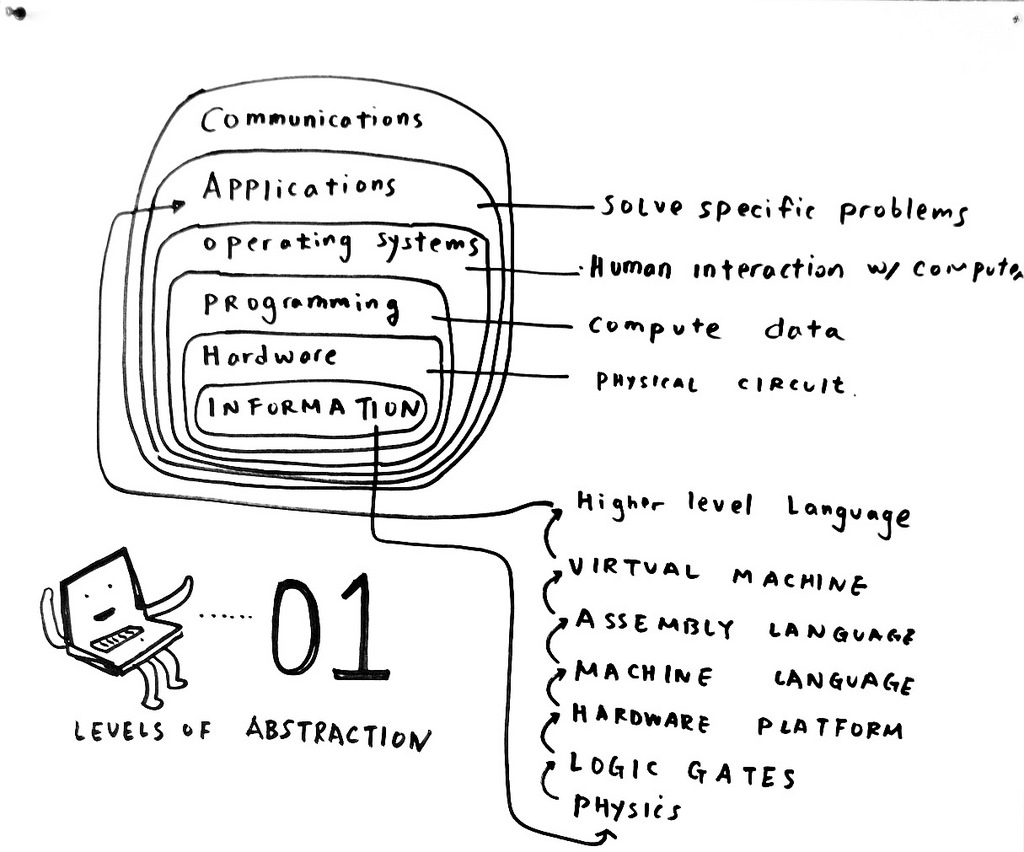 Communications
Applications
Solve specific problems
operating systems
Human interaction w/ computer
Programming
Compute data
Hardware
PHYSICAL CIRCUIT.
INFORMATION
Higher level Language
VIRTUAL MACHINE
ASSEMBLY LANGUAGE
MACHINE LANGUAGE
HARDWARE PLATFORM
LOGIC GATES
PHYSICS
01
LEVELS OF ABSTRACTION